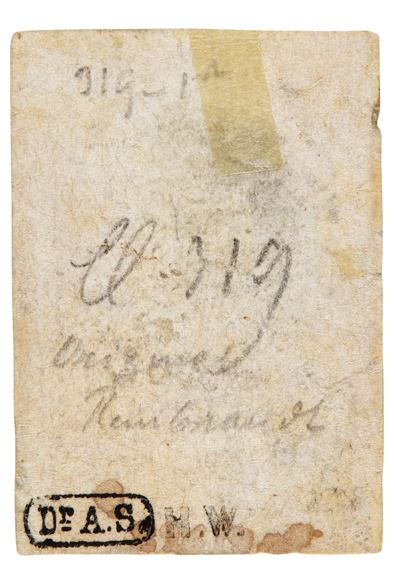 319-1
Cl 319
Original
Rembrandt
Dr. A.S. H.W.